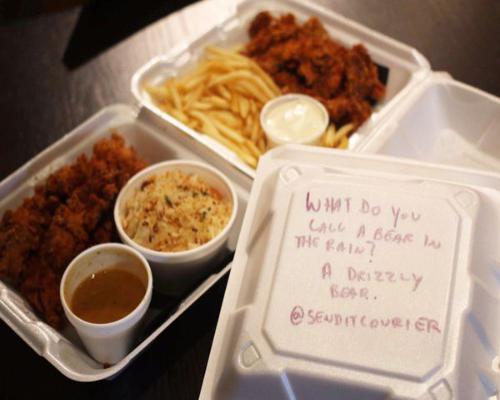 WHAT DO YOU
CALL A BEAR IN
THE RAIN?
A DRIZZLY
BEAR.
@SENDITCOURIER